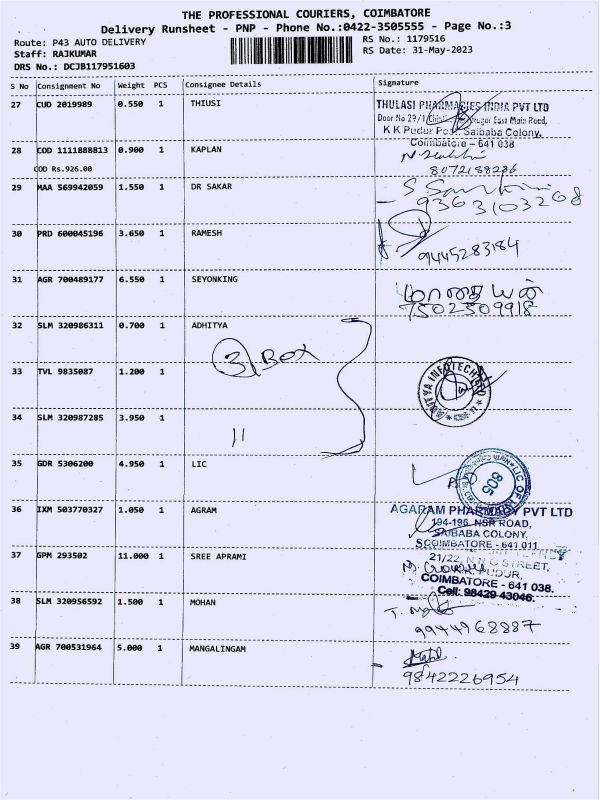 THE PROFESSIONAL COURIERS, COIMBATORE
Delivery Runsheet - PNP - Phone No.:0422-3505555 - Page No.:3
Route: P43 AUTO DELIVERY RS No.: 1179516
Staff: RAJKUMAR RS Date: 31-May-2023
DRS No.: DCJB117951603
S No Consignment No Weight PCS Consignee Details Signature
27 CUD 2019989 0.550 1 THIUSI
THULASI PHARMACIES INDIA PVT LTD
Door No 29/1 Nagar East Main Road,
K K Pudur Post, Saibaba Colony,
Coimbatore - 641 038
28 COD 1111888813 0.900 1 KAPLAN
COD Rs.926.00 8072188286
29 MAA 569942059 1.550 1 DR SAKAR
9363103268
30 PRD 600045196 3.650 1 RAMESH
9445283184
31 AGR 700489177 6.550 1 SEYONKING
7502509918
32 SLM 320986311 0.700 1 ADHITYA
3 Box
33 TVL 9835087 1.200 1
ADITYA INFOTECH
34 SLM 320987285 3.950 1
11
35 GDR 5306200 4.950 1 LIC
805
36 IXM 503770327 1.050 1 AGRAM
AGARAM PHARMACY PVT LTD
194-196, NSR ROAD,
SAIBABA COLONY,
COIMBATORE - 641 011
37 GPM 293502 11.000 1 SREE APRAMI
21/22, N.N.G STREET,
K.K. PUDUR,
COIMBATORE - 641 038.
Cell: 98429 43046.
38 SLM 320956592 1.500 1 MOHAN
9944968887
39 AGR 700531964 5.000 1 MANGALINGAM
9842226954